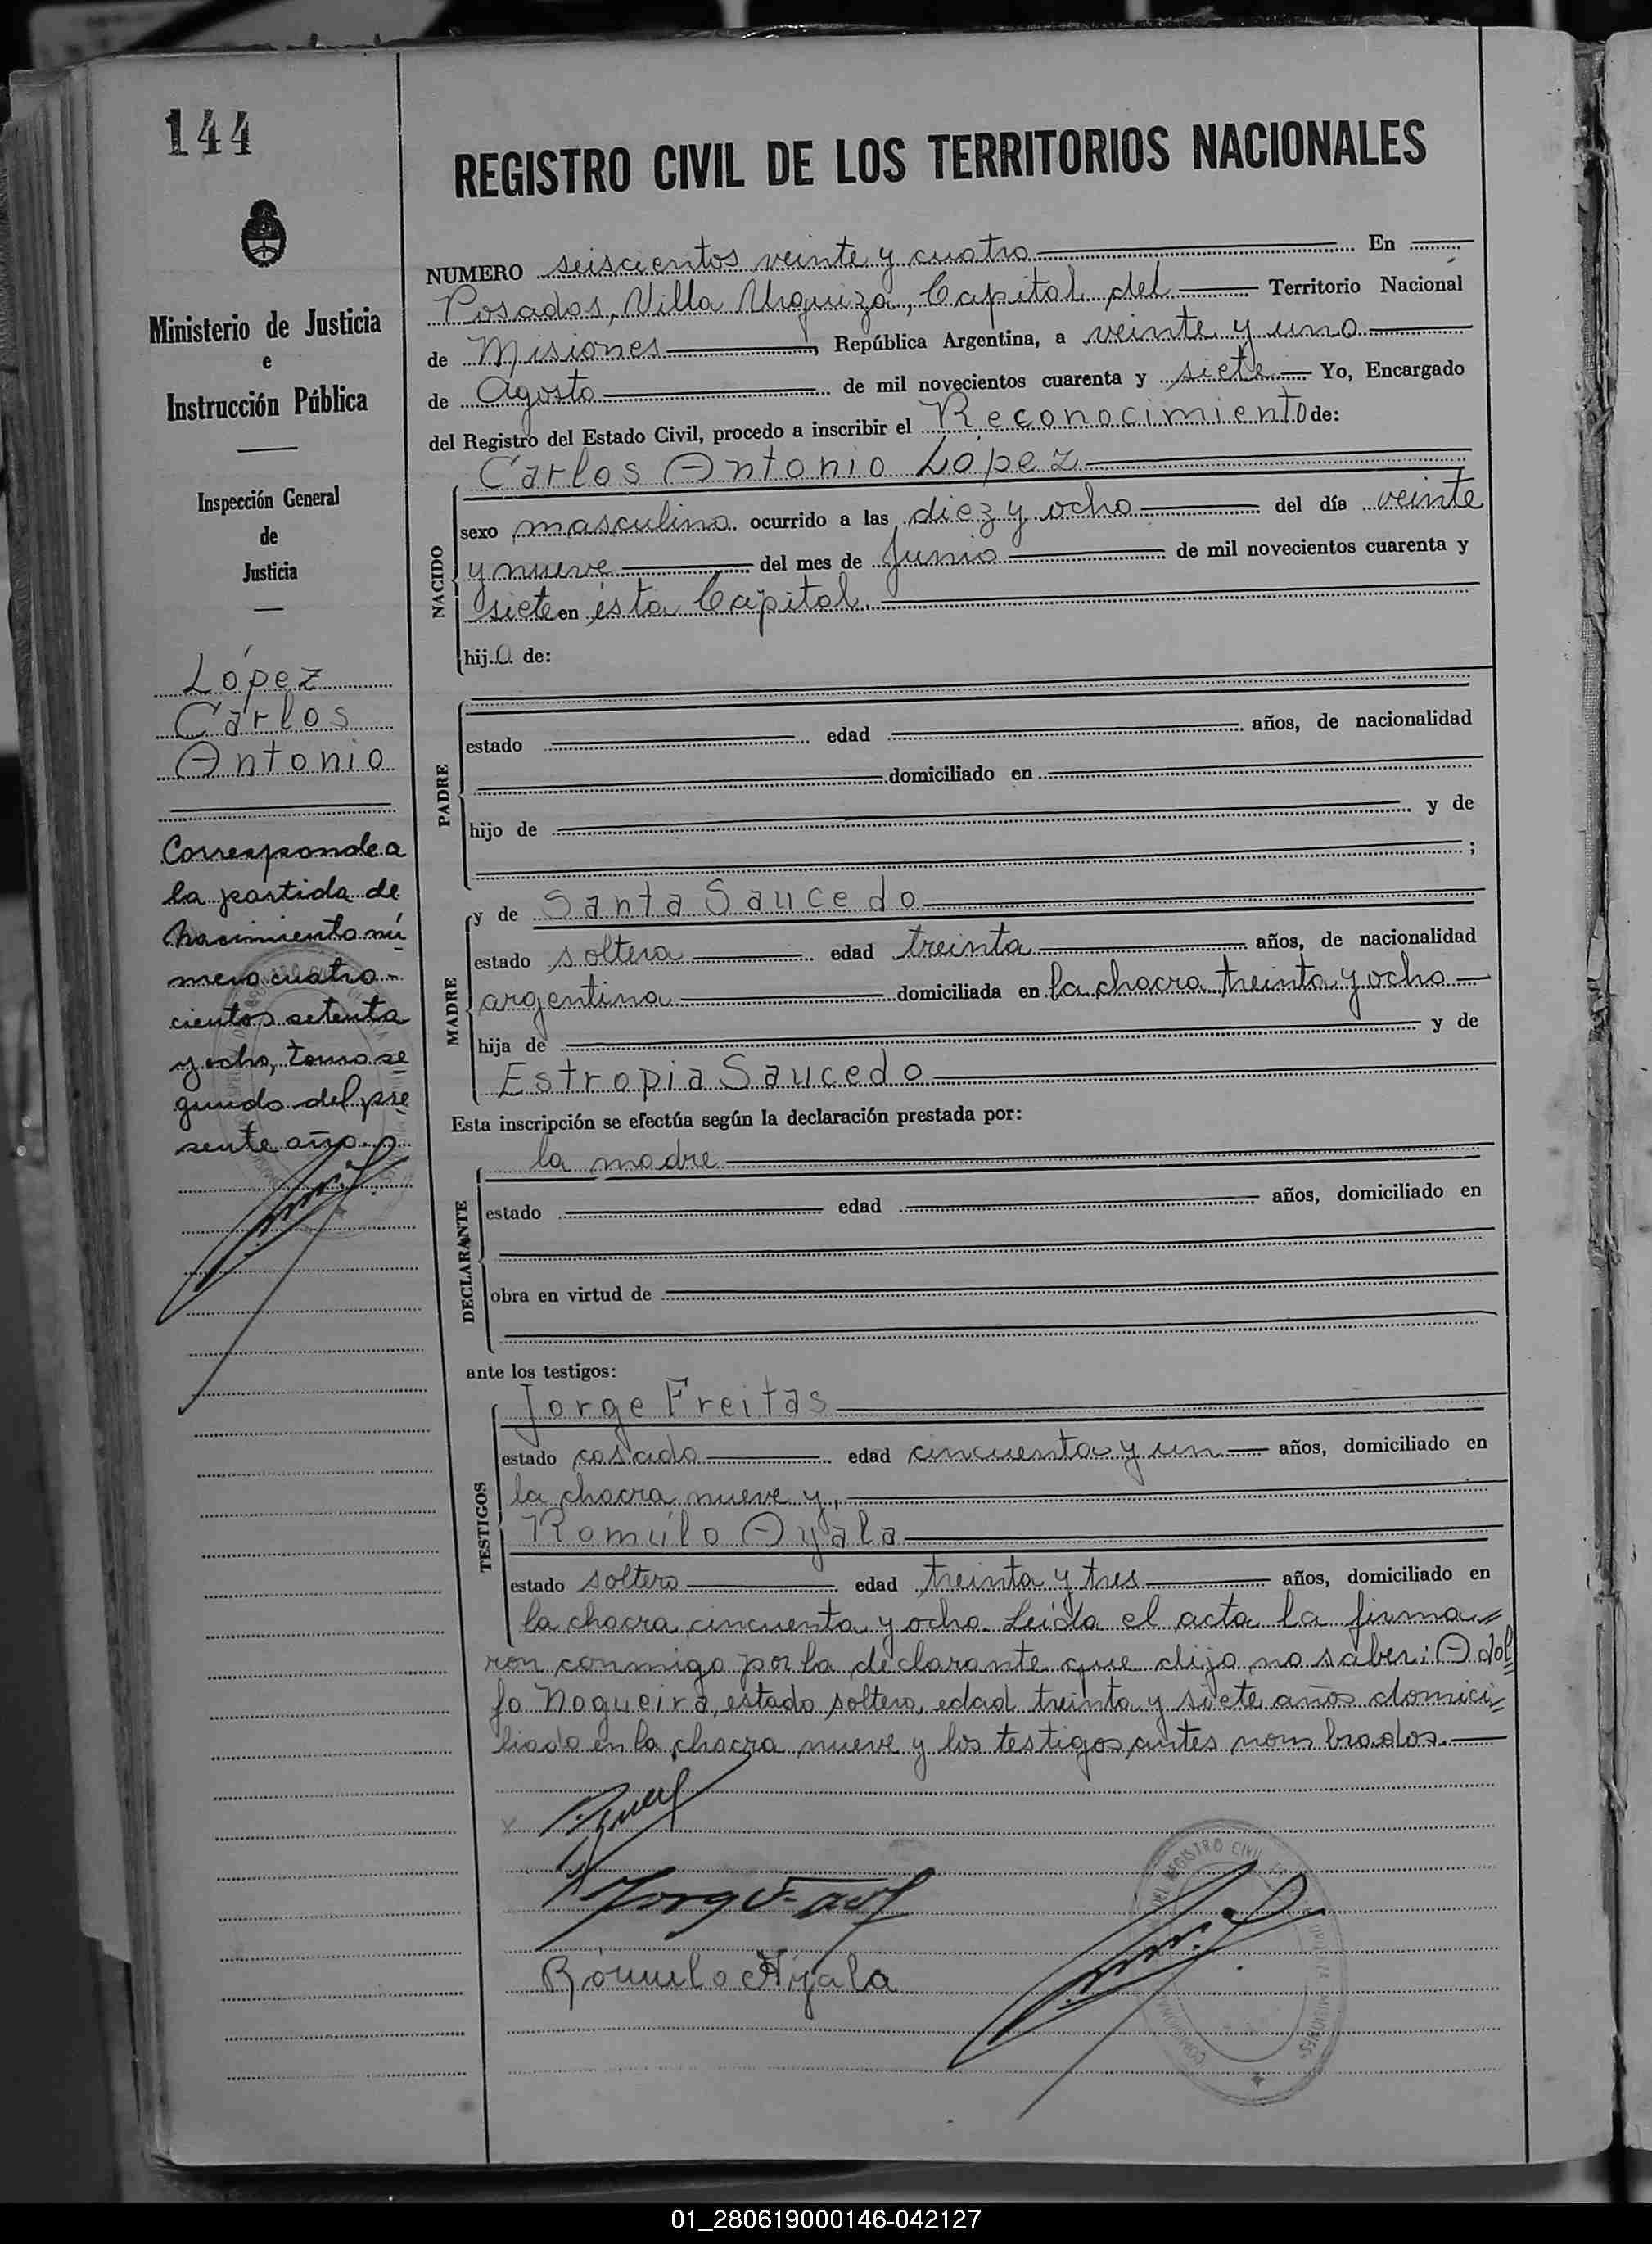 144
REGISTRO CIVIL DE LOS TERRITORIOS NACIONALES
Ministerio de Justicia
e
Instrucción Pública
Inspección General
de
Justicia
López
Carlos
Antonio
Corresponde a
la partida de
nacimiento nú
mero cuatro-
cientos setenta
y ocho, tomo se
gundo del pre
sente año.
NUMERO seiscientos veinte y cuatro En
Posadas, Villa Urquiza, Capital del Territorio Nacional
de Misiones, República Argentina, a veinte y uno
de Agosto de mil novecientos cuarenta y siete Yo, Encargado
del Registro del Estado Civil, procedo a inscribir el Reconocimiento de:
NACIDO
Carlos Antonio López
sexo masculino ocurrido a las diez y ocho del día veinte
y nueve del mes de Junio de mil novecientos cuarenta y
siete en ésta Capital.
hijo de:
PADRE
estado edad años, de nacionalidad
domiciliado en
hijo de y de
;
MADRE
y de Santa Saucedo
estado soltera edad treinta años, de nacionalidad
argentina domiciliada en la chacra treinta y ocho
hija de y de
Estropia Saucedo
Esta inscripción se efectúa según la declaración prestada por:
DECLARANTE
la madre
estado edad años, domiciliado en
obra en virtud de
ante los testigos:
TESTIGOS
Jorge Freitas
estado casado edad cincuenta y un años, domiciliado en
la chacra nueve y,
Romúlo Ayala
estado soltero edad treinta y tres años, domiciliado en
la chacra cincuenta y ocho. Leída el acta la firma=
ron conmigo por la declarante que dijo no saber: Adol=
fo Nogueira, estado soltero, edad treinta y siete años domici=
liado en la chacra nueve y los testigos antes nombrados.
Rómulo Ayala
REGISTRO CIVIL
01_280619000146-042127